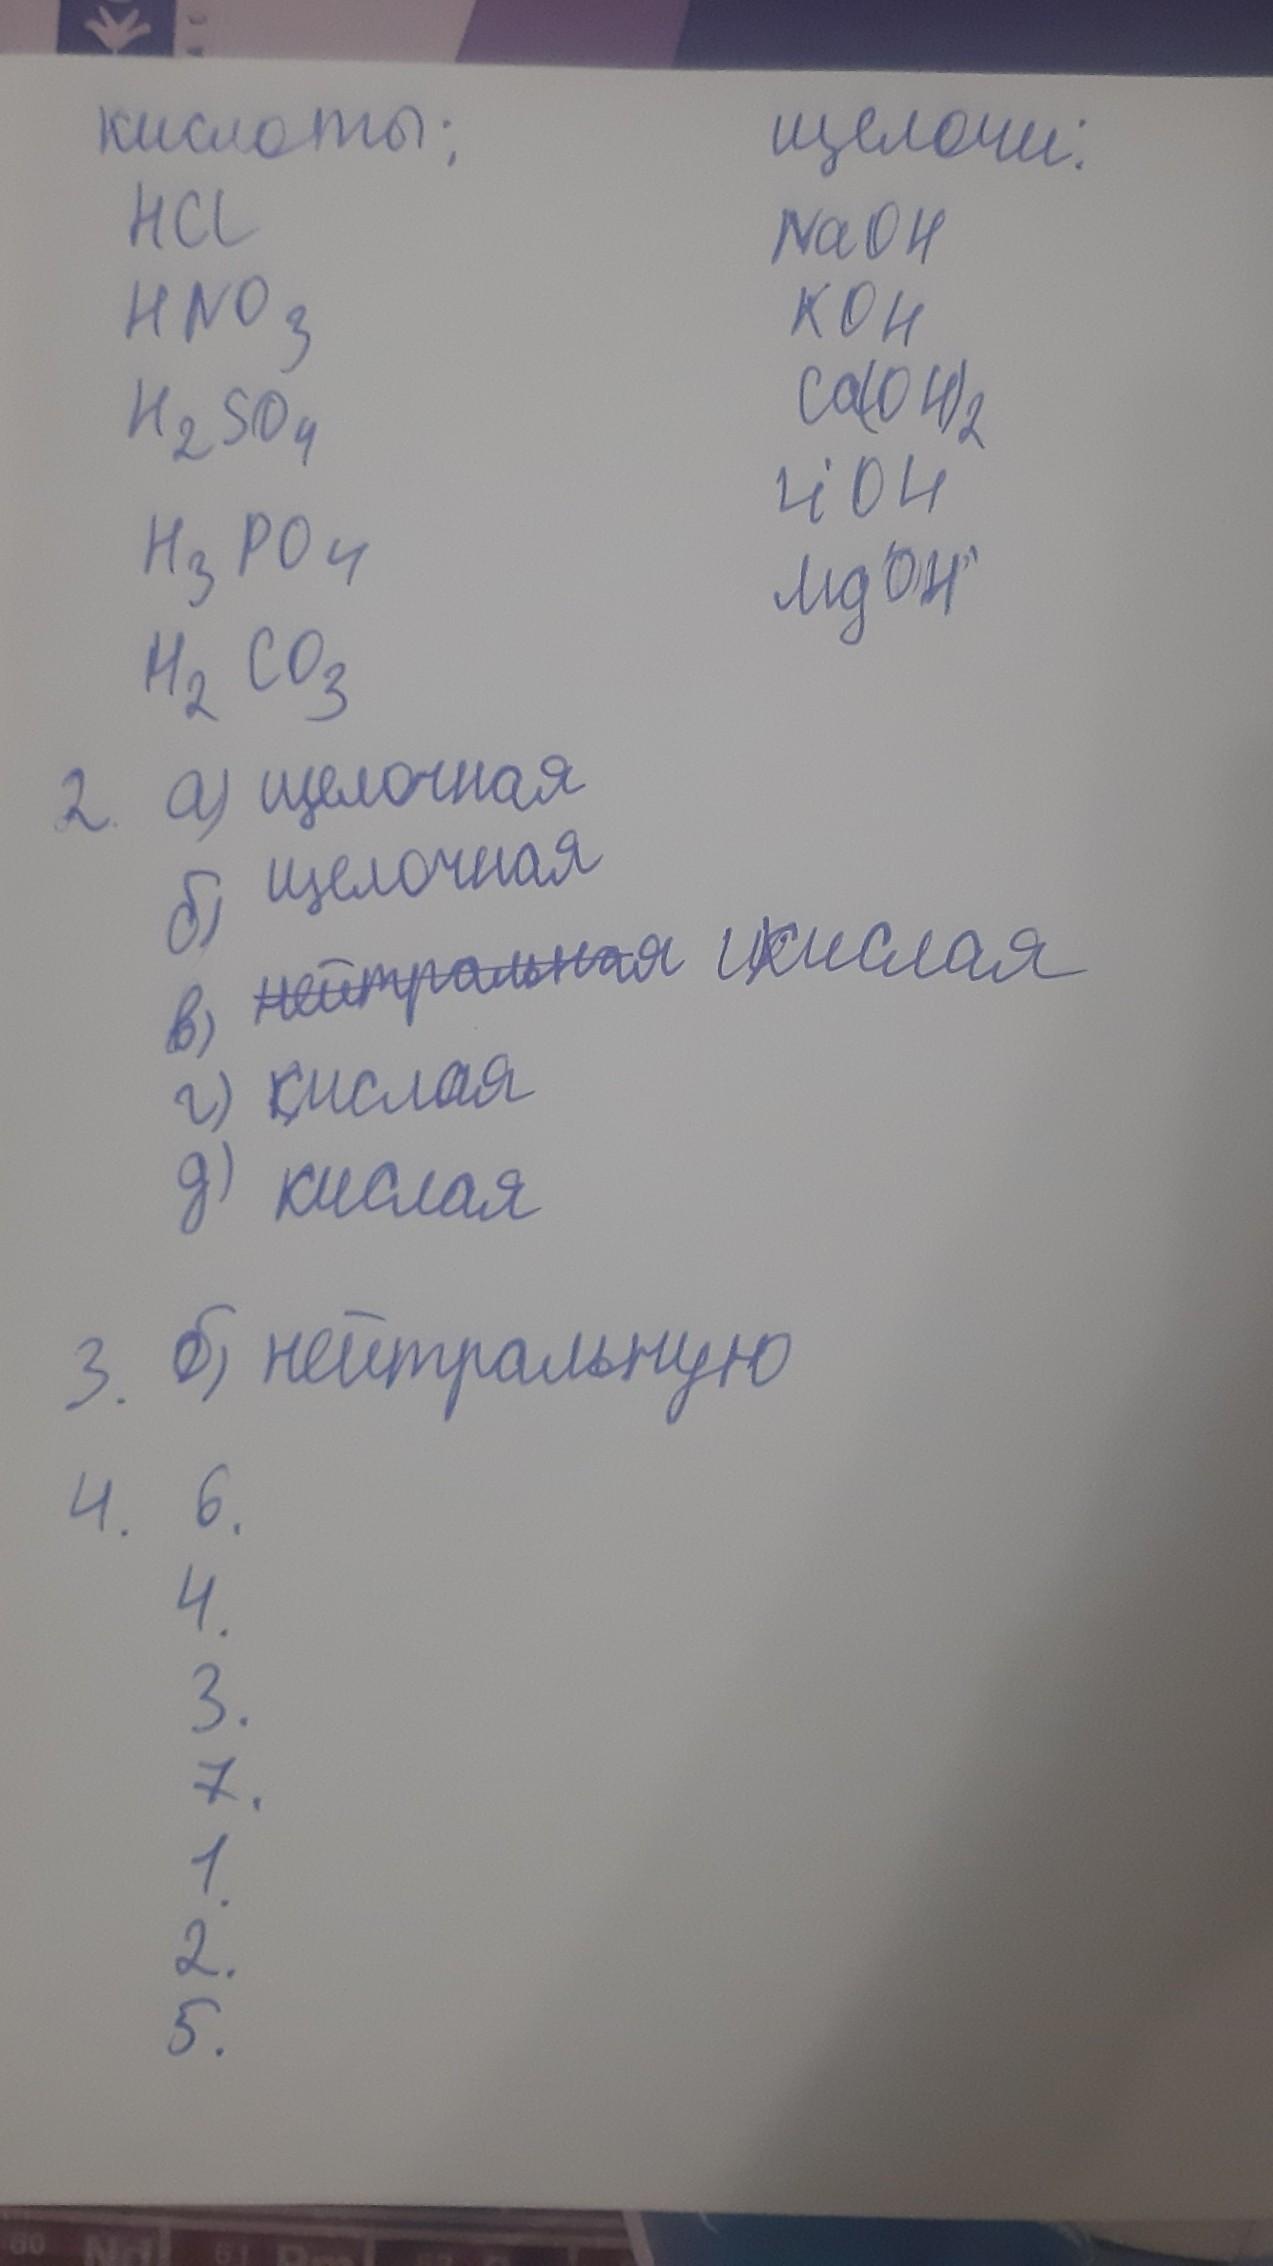 кислоты;
HCl
HNO3
H2SO4
H3PO4
H2CO3
щелочи:
NaOH
KOH
Ca(OH)2
LiOH
MgOH
2. а) щелочная
б) щелочная
в) нейтральная кислая
г) кислая
д) кислая
3. б) нейтральную
4. 6.
4.
3.
7.
1.
2.
5.
60 Nd 61 Pm